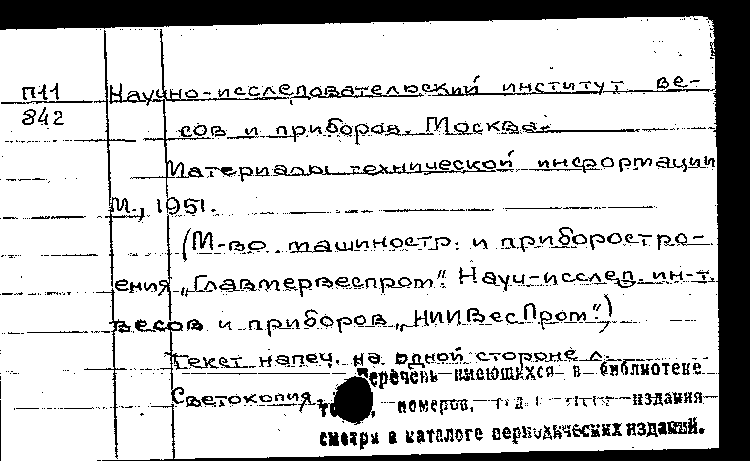 П11
842
Научно-исследовательский институт ве-
сов и приборов. Москва.
Материалы технической информации
М., 1951.
(М-во машиностр. и приборостро-
ения „Главмервеспром“. Науч-исслед. ин-т.
весов и приборов „НИИВесПром“.)
Текст напеч. на одной стороне л.
Светокопия.
Перечень имеющихся в библиотеке
номеров, издания
смотри в каталоге периодических изданий.